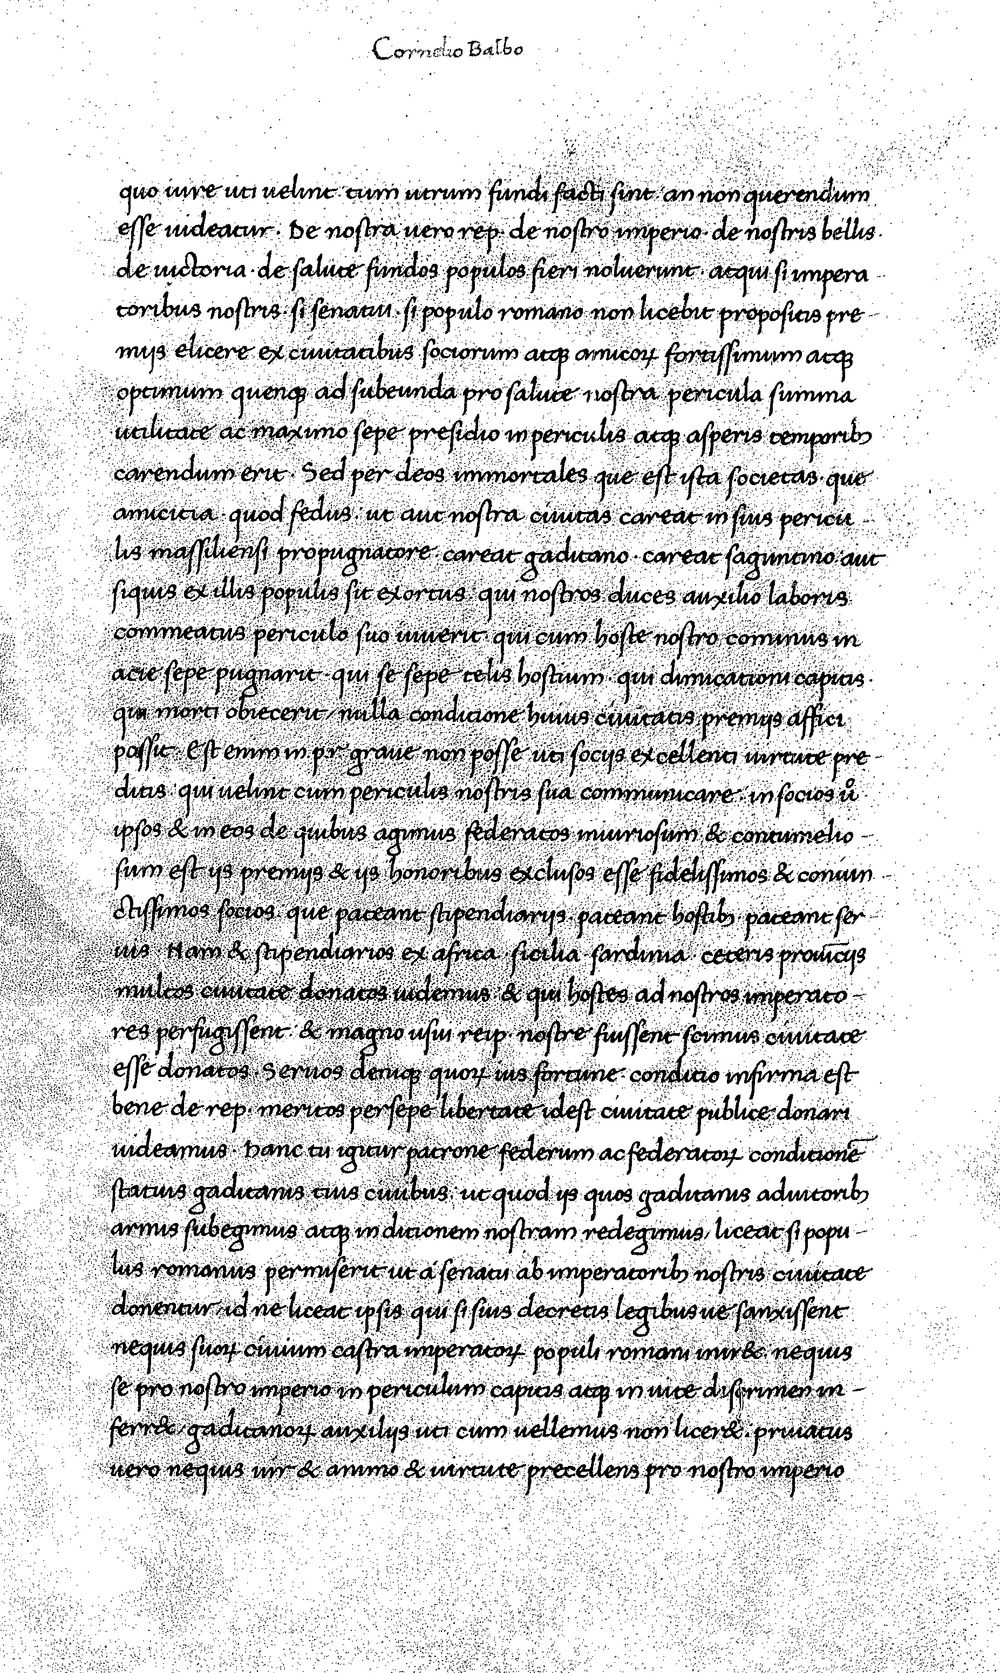 Cornelio Balbo
quo iure uti uelint. cum utrum fundi facti sint. an non querendum
esse uideatur. De nostra uero rep. de nostro imperio. de nostris bellis.
de uictoria. de salute fundos populos fieri noluerunt. atqui si impera
toribus nostris. si senatui. si populo romano non licebit propositis pre-
mijs elicere ex ciuitatibus sociorum atqꝫ amicoꝝ fortissimum atqꝫ
optimum quenqꝫ ad subeunda pro salute nostra pericula summa
utilitate ac maximo sepe presidio in periculis atqꝫ asperis temporibꝫ
carendum erit. Sed per deos immortales que est ista societas. que
amicitia. quod fedus. ut aut nostra ciuitas careat in suis pericu-
lis massiliensi propugnatore. careat gaditano. careat saguntino. aut
siquis ex illis populis sit exortus. qui nostros duces auxilio laboris
commeatus periculo suo iuuerit. qui cum hoste nostro cominus in
acie sepe pugnarit. qui se sepe telis hostium. qui dimicationi capitis.
qui morti obiecerit/ nulla condicione huius ciuitatis premijs affici
possit. Est enim in pr̄ graue non posse uti socijs excellenti uirtute pre-
ditis. qui uelint cum periculis nostris sua communicare. in socios uͦ
ipsos & in eos de quibus agimus federatos iniuriosum & contumelio-
sum est ijs premijs & ijs honoribus exclusos esse fidelissimos & coniun-
ctissimos socios. que pateant stipendiarijs. pateant hostibꝫ. pateant ser-
uis. Nam & stipendiarios ex africa. sicilia. sardinia. ceteris prouīcijs
multos ciuitate donatos uidemus. & qui hostes ad nostros imperato-
res perfugissent. & magno usui reip. nostre fuissent scimus ciuitate
esse donatos. Seruos deniqꝫ quoꝝ ius fortune. conditio infirma est
bene de rep. meritos persepe libertate idest ciuitate publice donari
uideamus. Hanc tu igitur patrone federum ac federatoꝝ conditionē
statuis gaditanis tuis ciuibus. ut quod ijs quos gaditanis aduitoribꝫ
armis subegimus atqꝫ in dicionem nostram redegimus/ liceat si popu-
lus romanus permiserit ut a senatu ab imperatoribꝫ nostris ciuitate
donentur/ id ne liceat ipsis qui si suis decretis legibus ue sanxissent
nequis suoꝝ ciuium castra imperatoꝝ populi romani inir&. nequis
se pro nostro imperio in periculum capitis atqꝫ in uite discrimen in-
ferr&/ gaditanoꝝ auxilijs uti cum uellemus non licer&. priuatus
uero nequis uir & animo & uirtute precellens pro nostro imperio